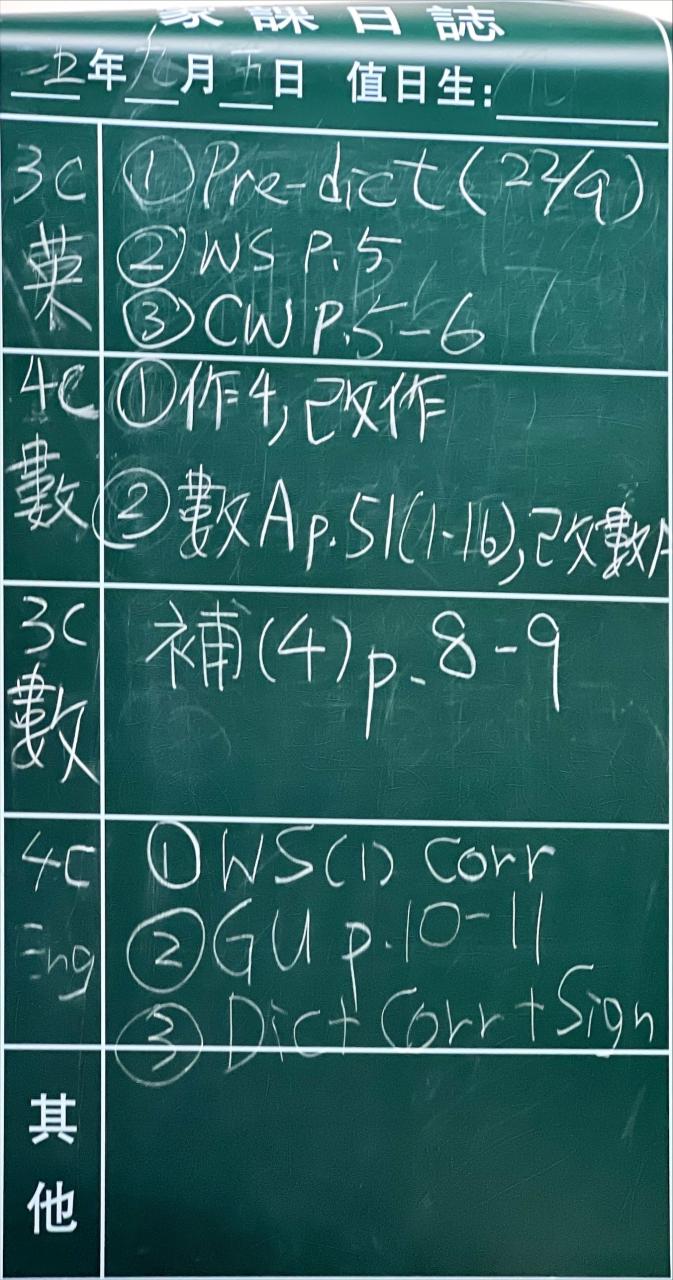 家課日誌
年九月五日 值日生:
3C ①Pre-dict (22/9)
英 ②WS P.5
③CW P.5-6
4C ①作4,改作
數 ②數A p.51(1-16),改數A
3C 補(4)p.8-9
數
4C ①WS(1) Corr
Eng ②GU p.10-11
③Dict Corr + Sign
其他